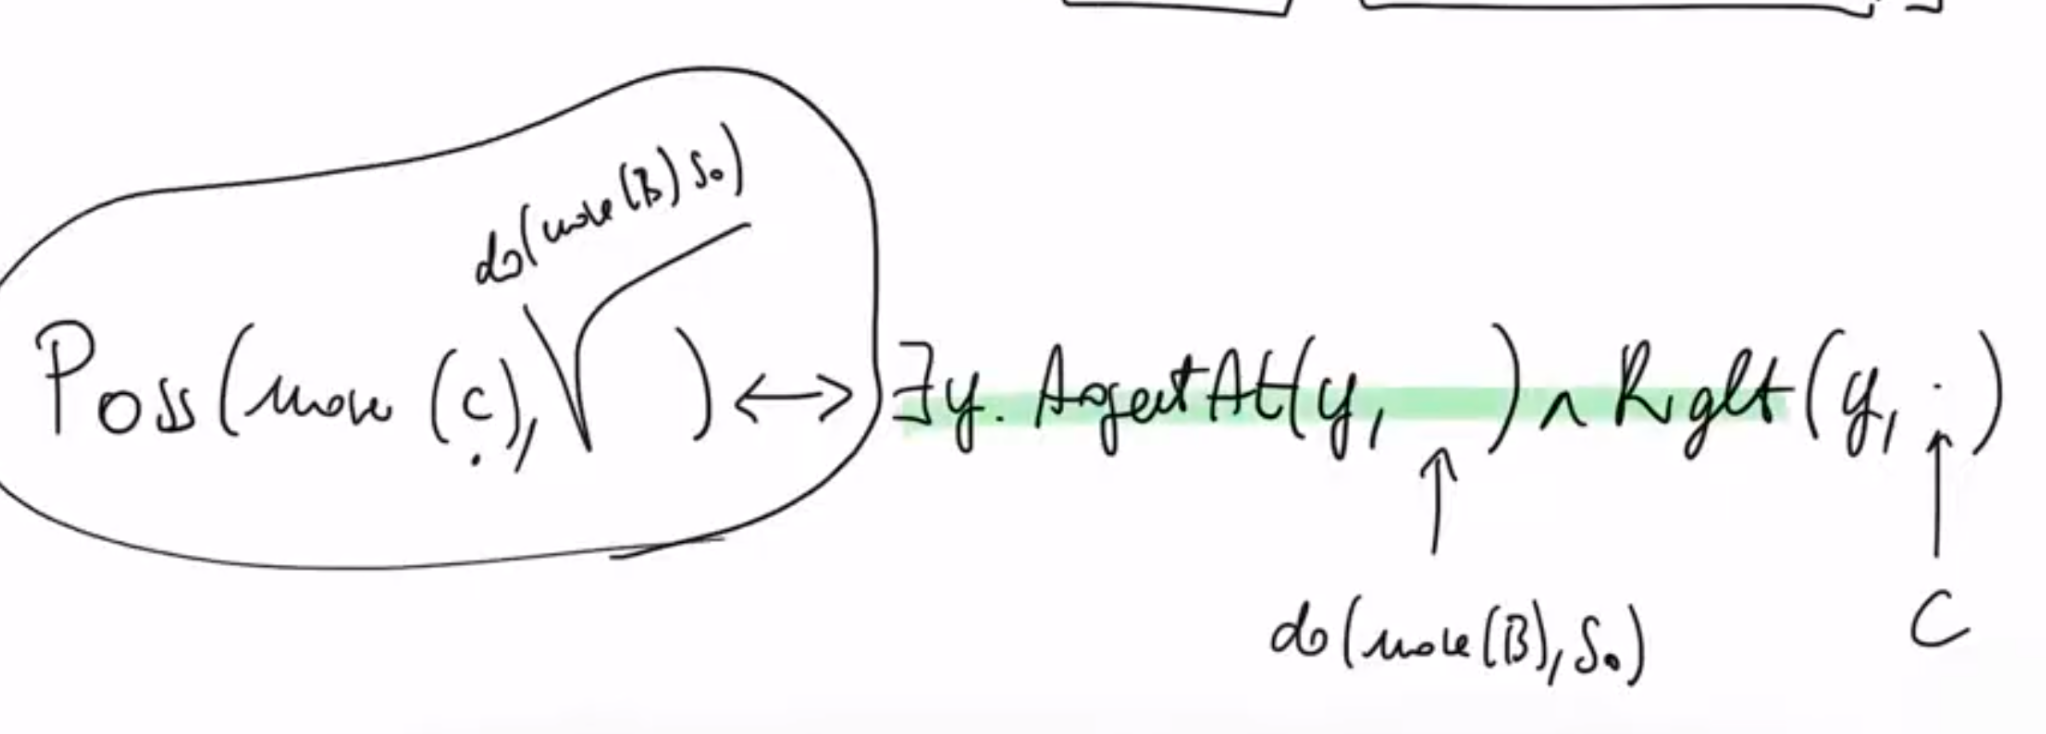 do(move(B) S₀)
Poss(move (c), ) ↔ ∃y. AgentAt(y, ) ∧ Right(y, )
do(move(B), S₀) C